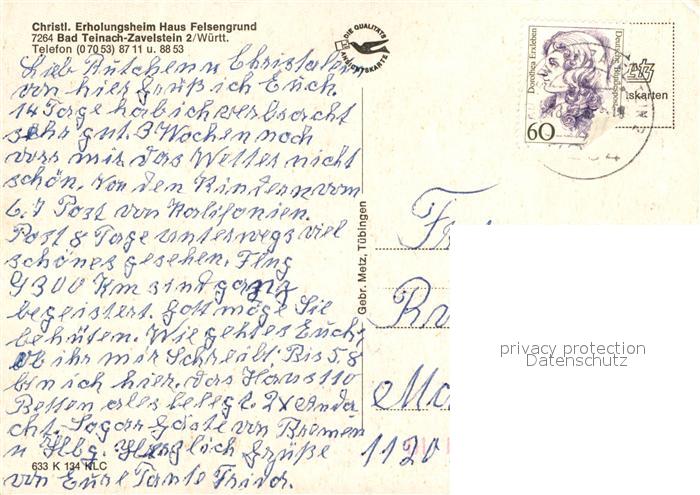 Christl. Erholungsheim Haus Felsengrund
7264 Bad Teinach-Zavelstein 2/Württ.
Telefon (0 70 53) 87 11 u. 88 53
Lieb Rutchen u Christa
von hier grüß ich Euch.
14 Tage hab ich verbracht
sehr gut. 3 Wochen noch
vor mir das Wetter nicht
schön. Von den Kindern vom
6.7 Post von Kalifonien.
Post 8 Tage unterwegs viel
schönes gesehen. Flug
9300 Km sind ganz
begeistert. Gott möge Sie
behüten. Wie geht es Euch,
ob ihr mir Schreibt. Bis 5.8
bin ich hier. das Haus 110
Betten alles belegt. 2x Anda
cht. Sogar Gäste von Bremen
u Hbg. Herzlich Grüße
von Eure Tante Frida.
633 K 134 KLC
Gebr. Metz, Tübingen
DIE QUALITÄTS
ANSICHTSKARTE
Dorothea Erxleben
Deutsche Bundespost
60
skarten
1120
privacy protection
Datenschutz